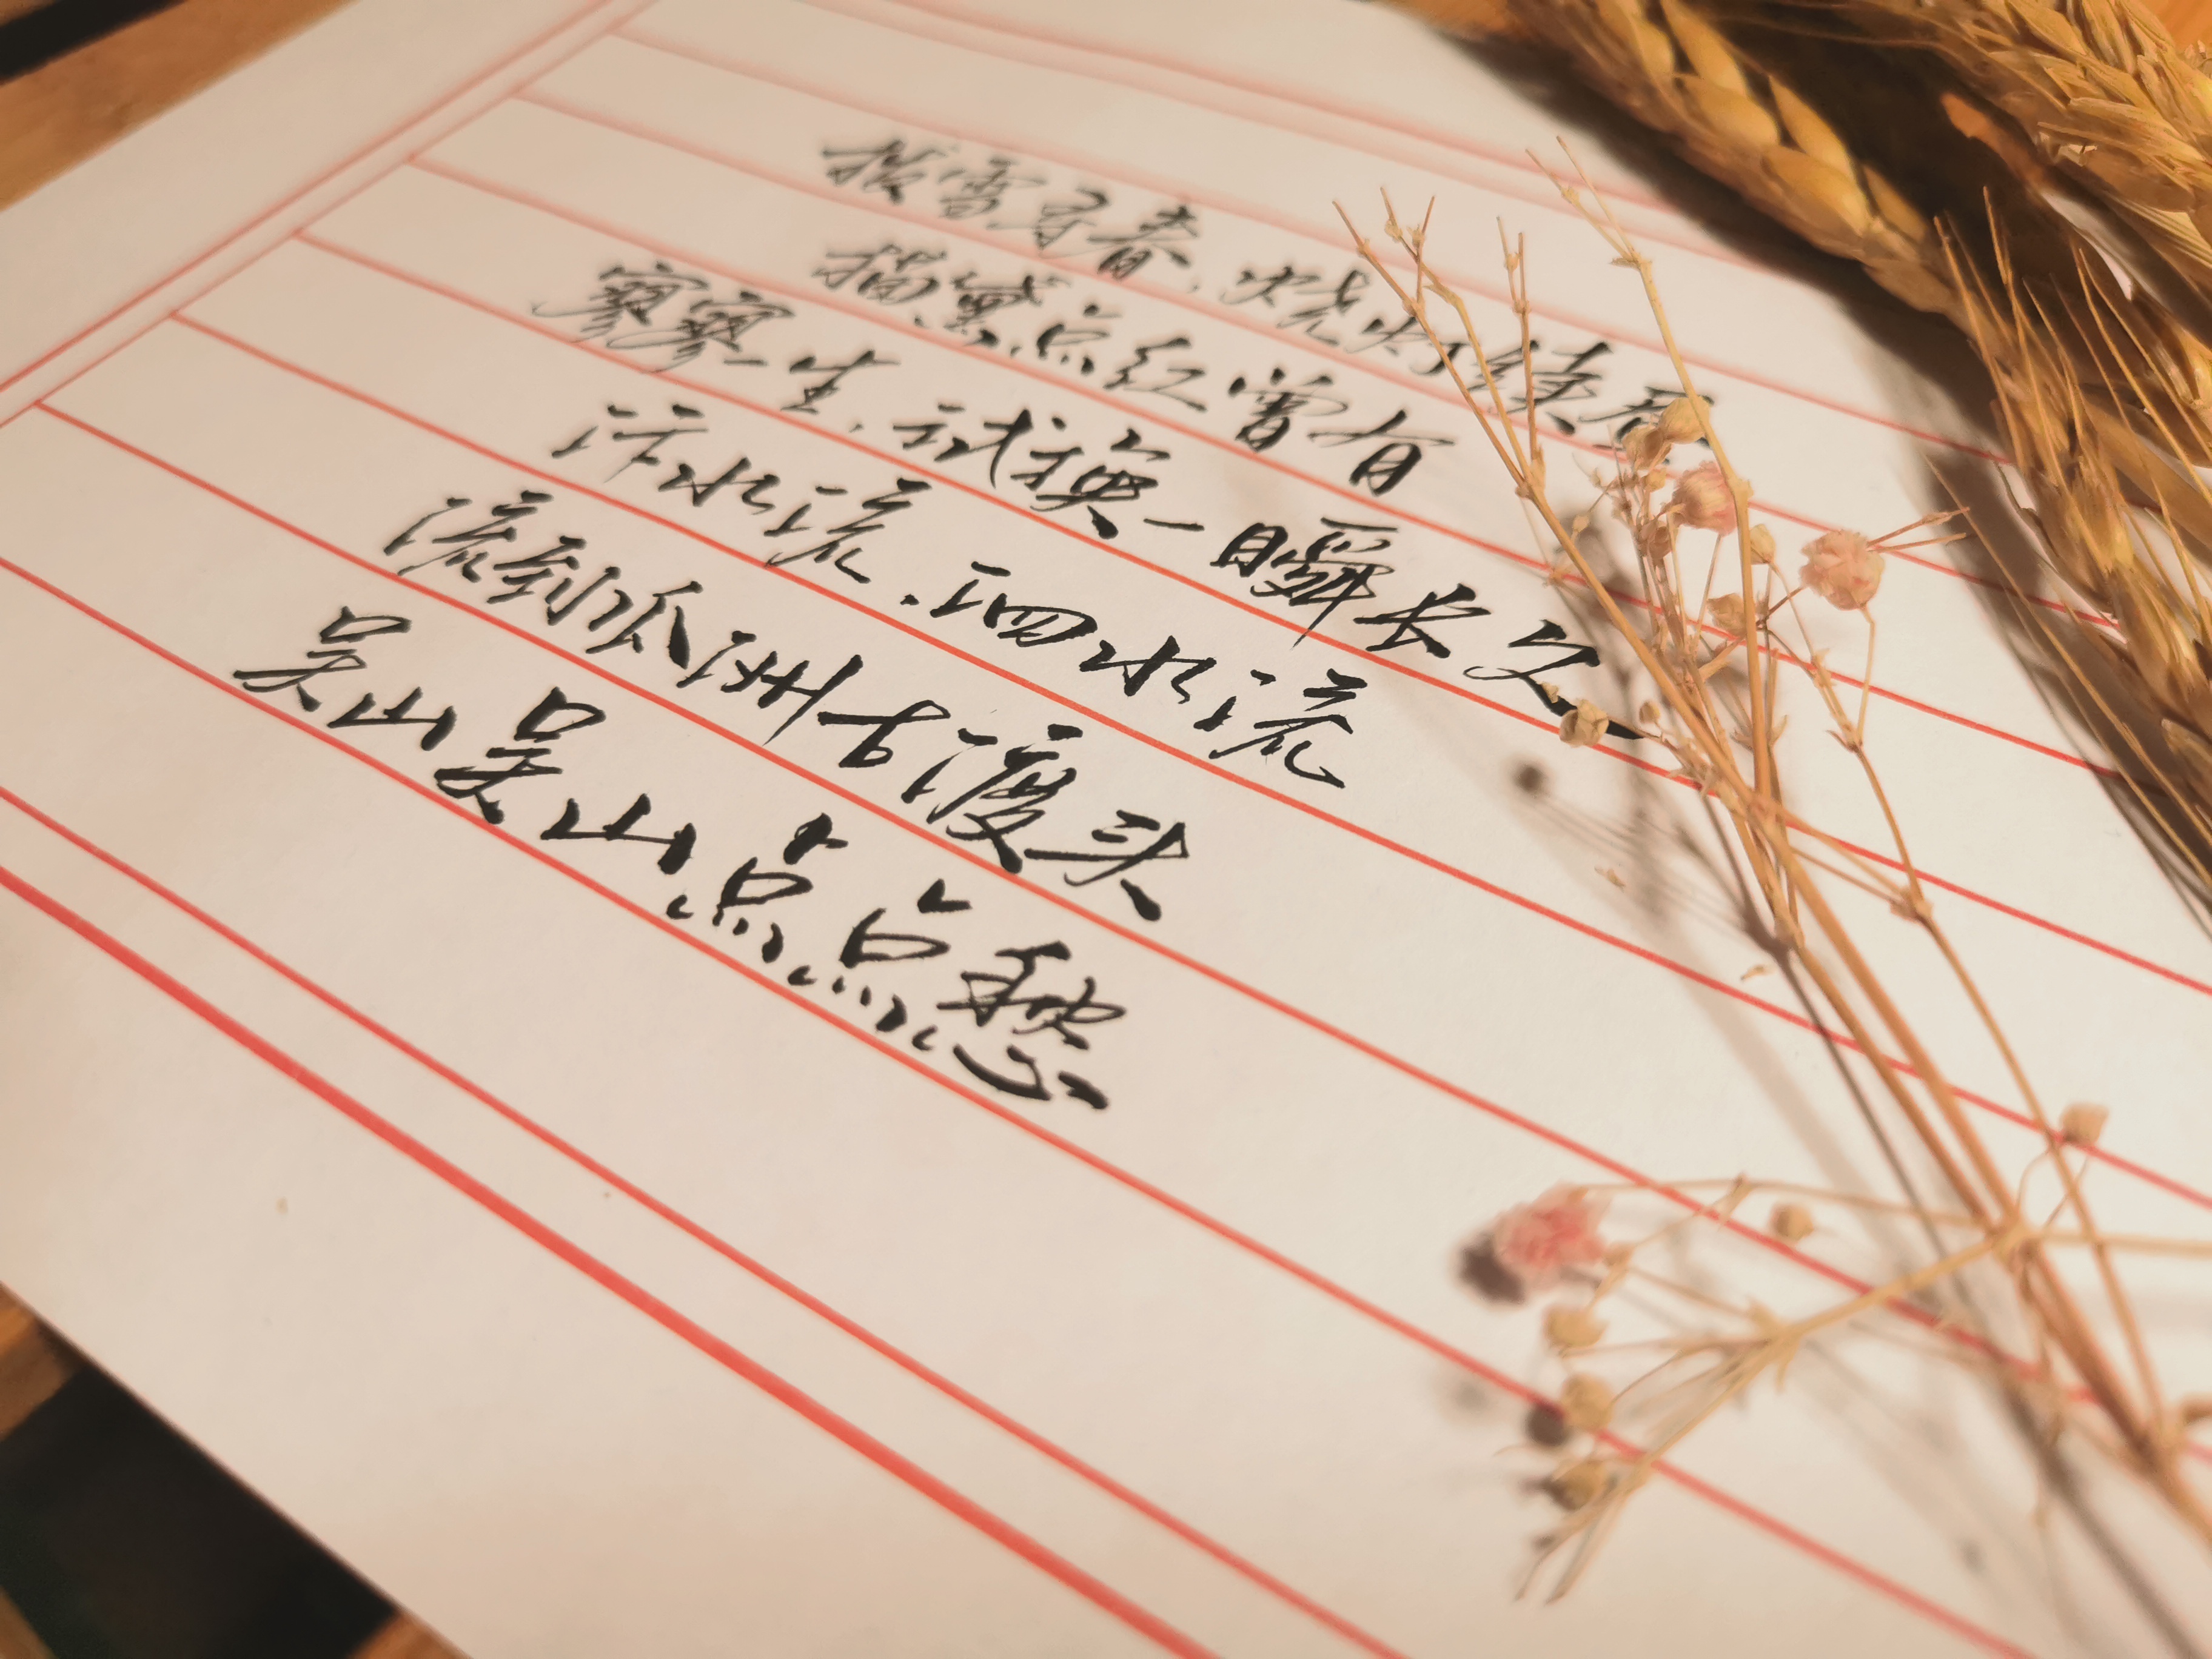 拨雪寻春,烧灯续昼
描黛点红曾有
寥寥一生,试换一瞬长久
汴水流,泗水流
流到瓜洲古渡头
吴山吴山点点愁